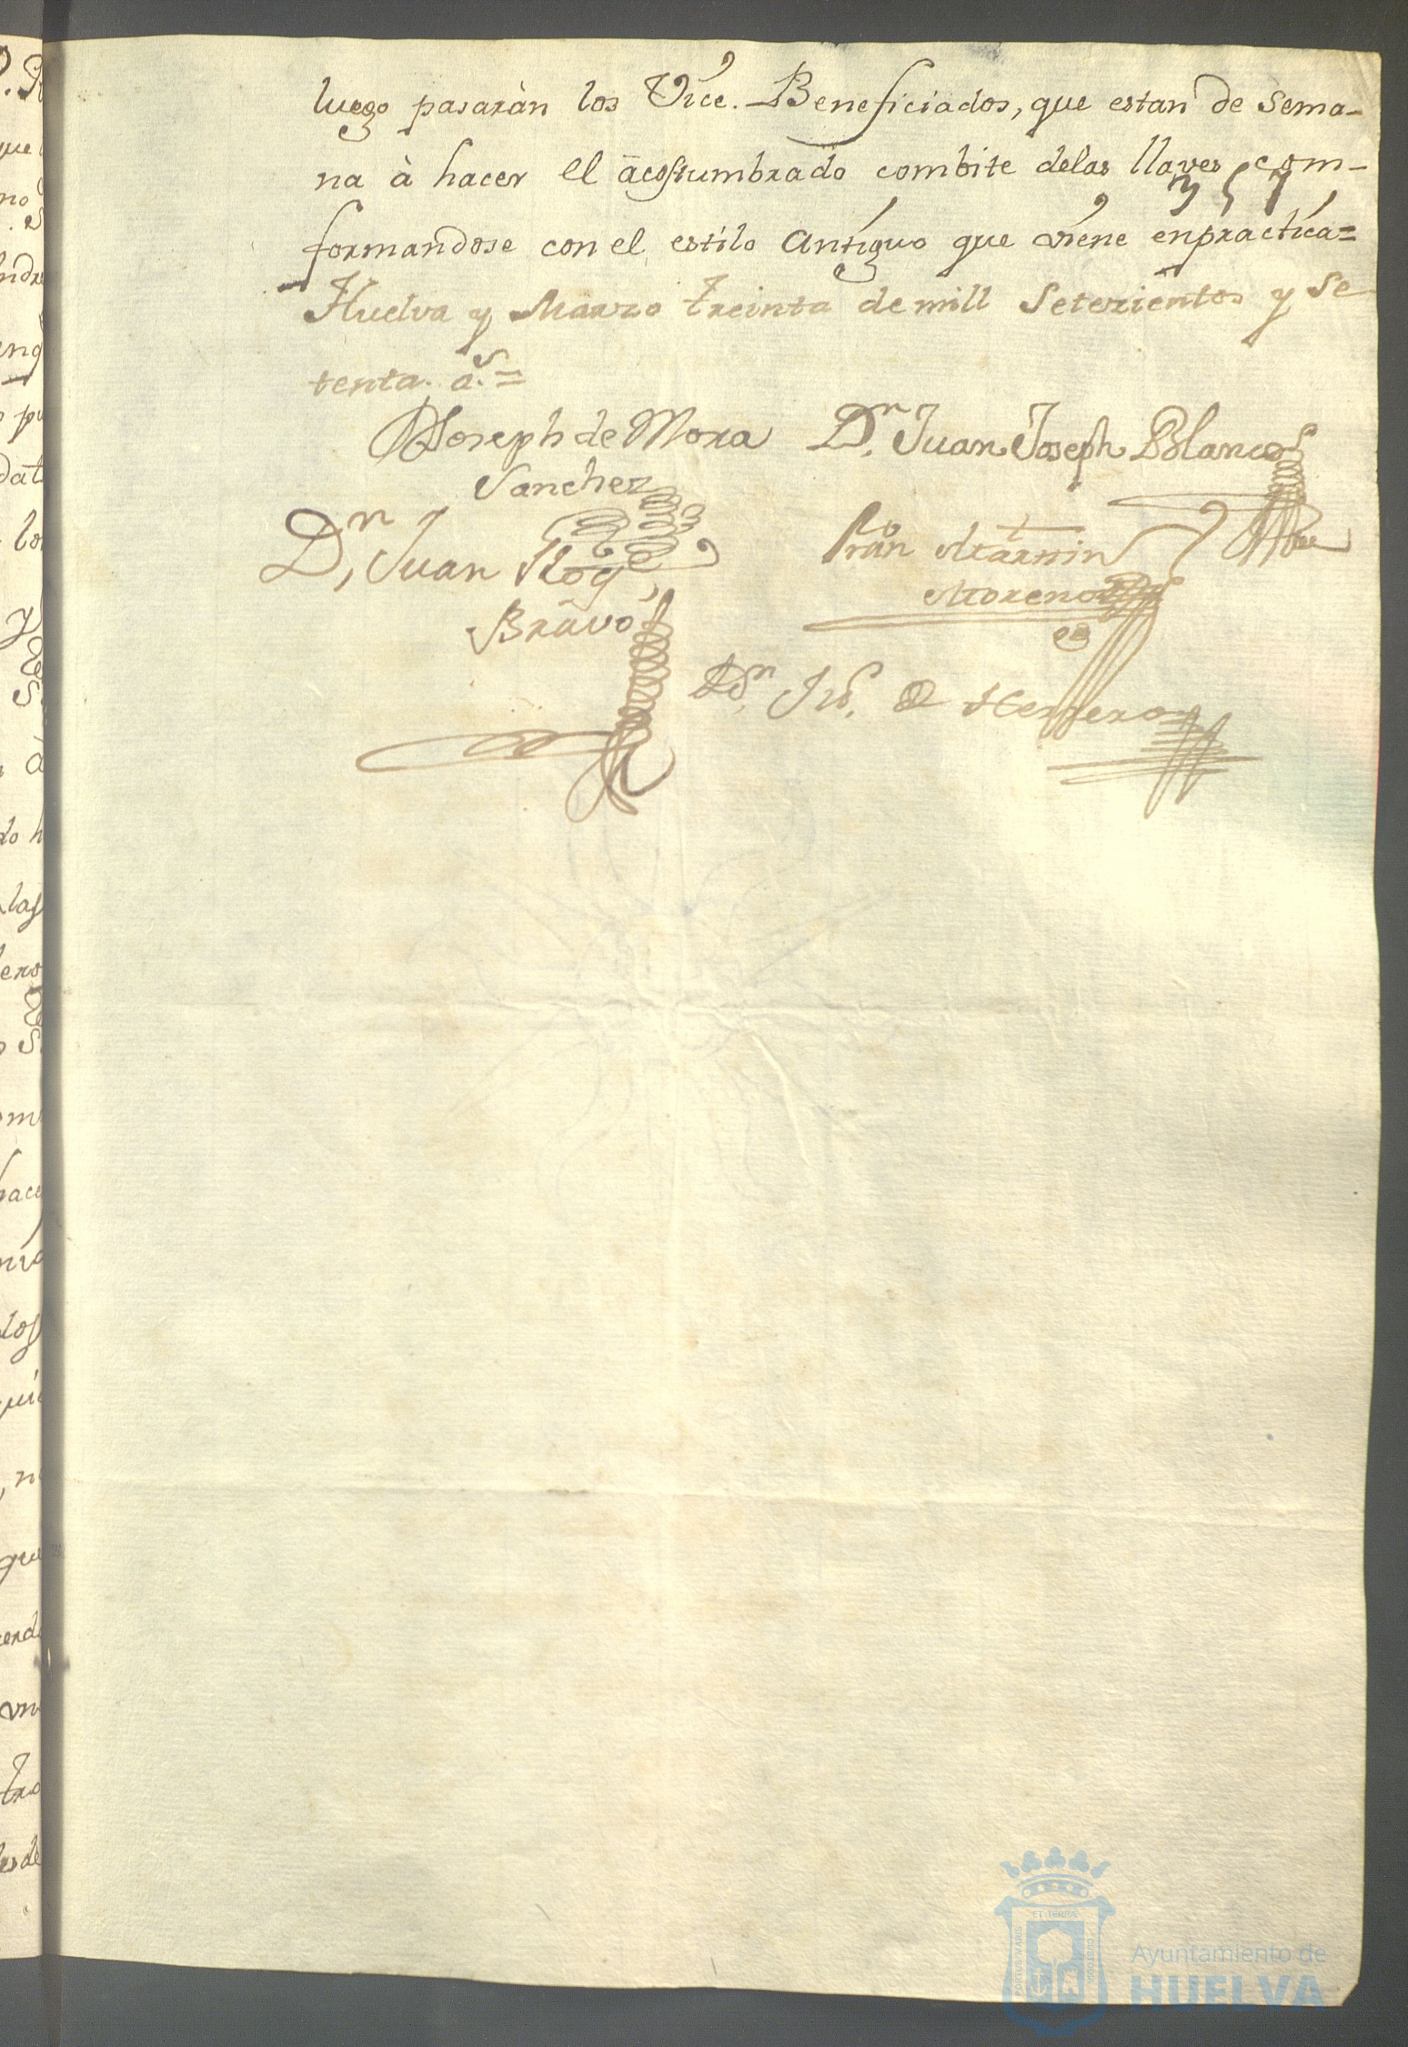 luego pasaràn los Vice. Beneficiados, que estan de sema-
na à hacer el acostumbrado combite delas llaves, com-
357
formandose con el estilo antiguo que viene enpractica=
Huelva y Marzo treinta de mill Setezientos y se
tenta. a.s=
Joseph de Mora
Sanchez
Dn. Juan Joseph Blanco
Dn, Juan
Bravo
Fran Martin
Moreno
Dn. Herrero
ET TERRÆ
PORTUS MARIS
CUSTODIA
Ayuntamiento de
HUELVA